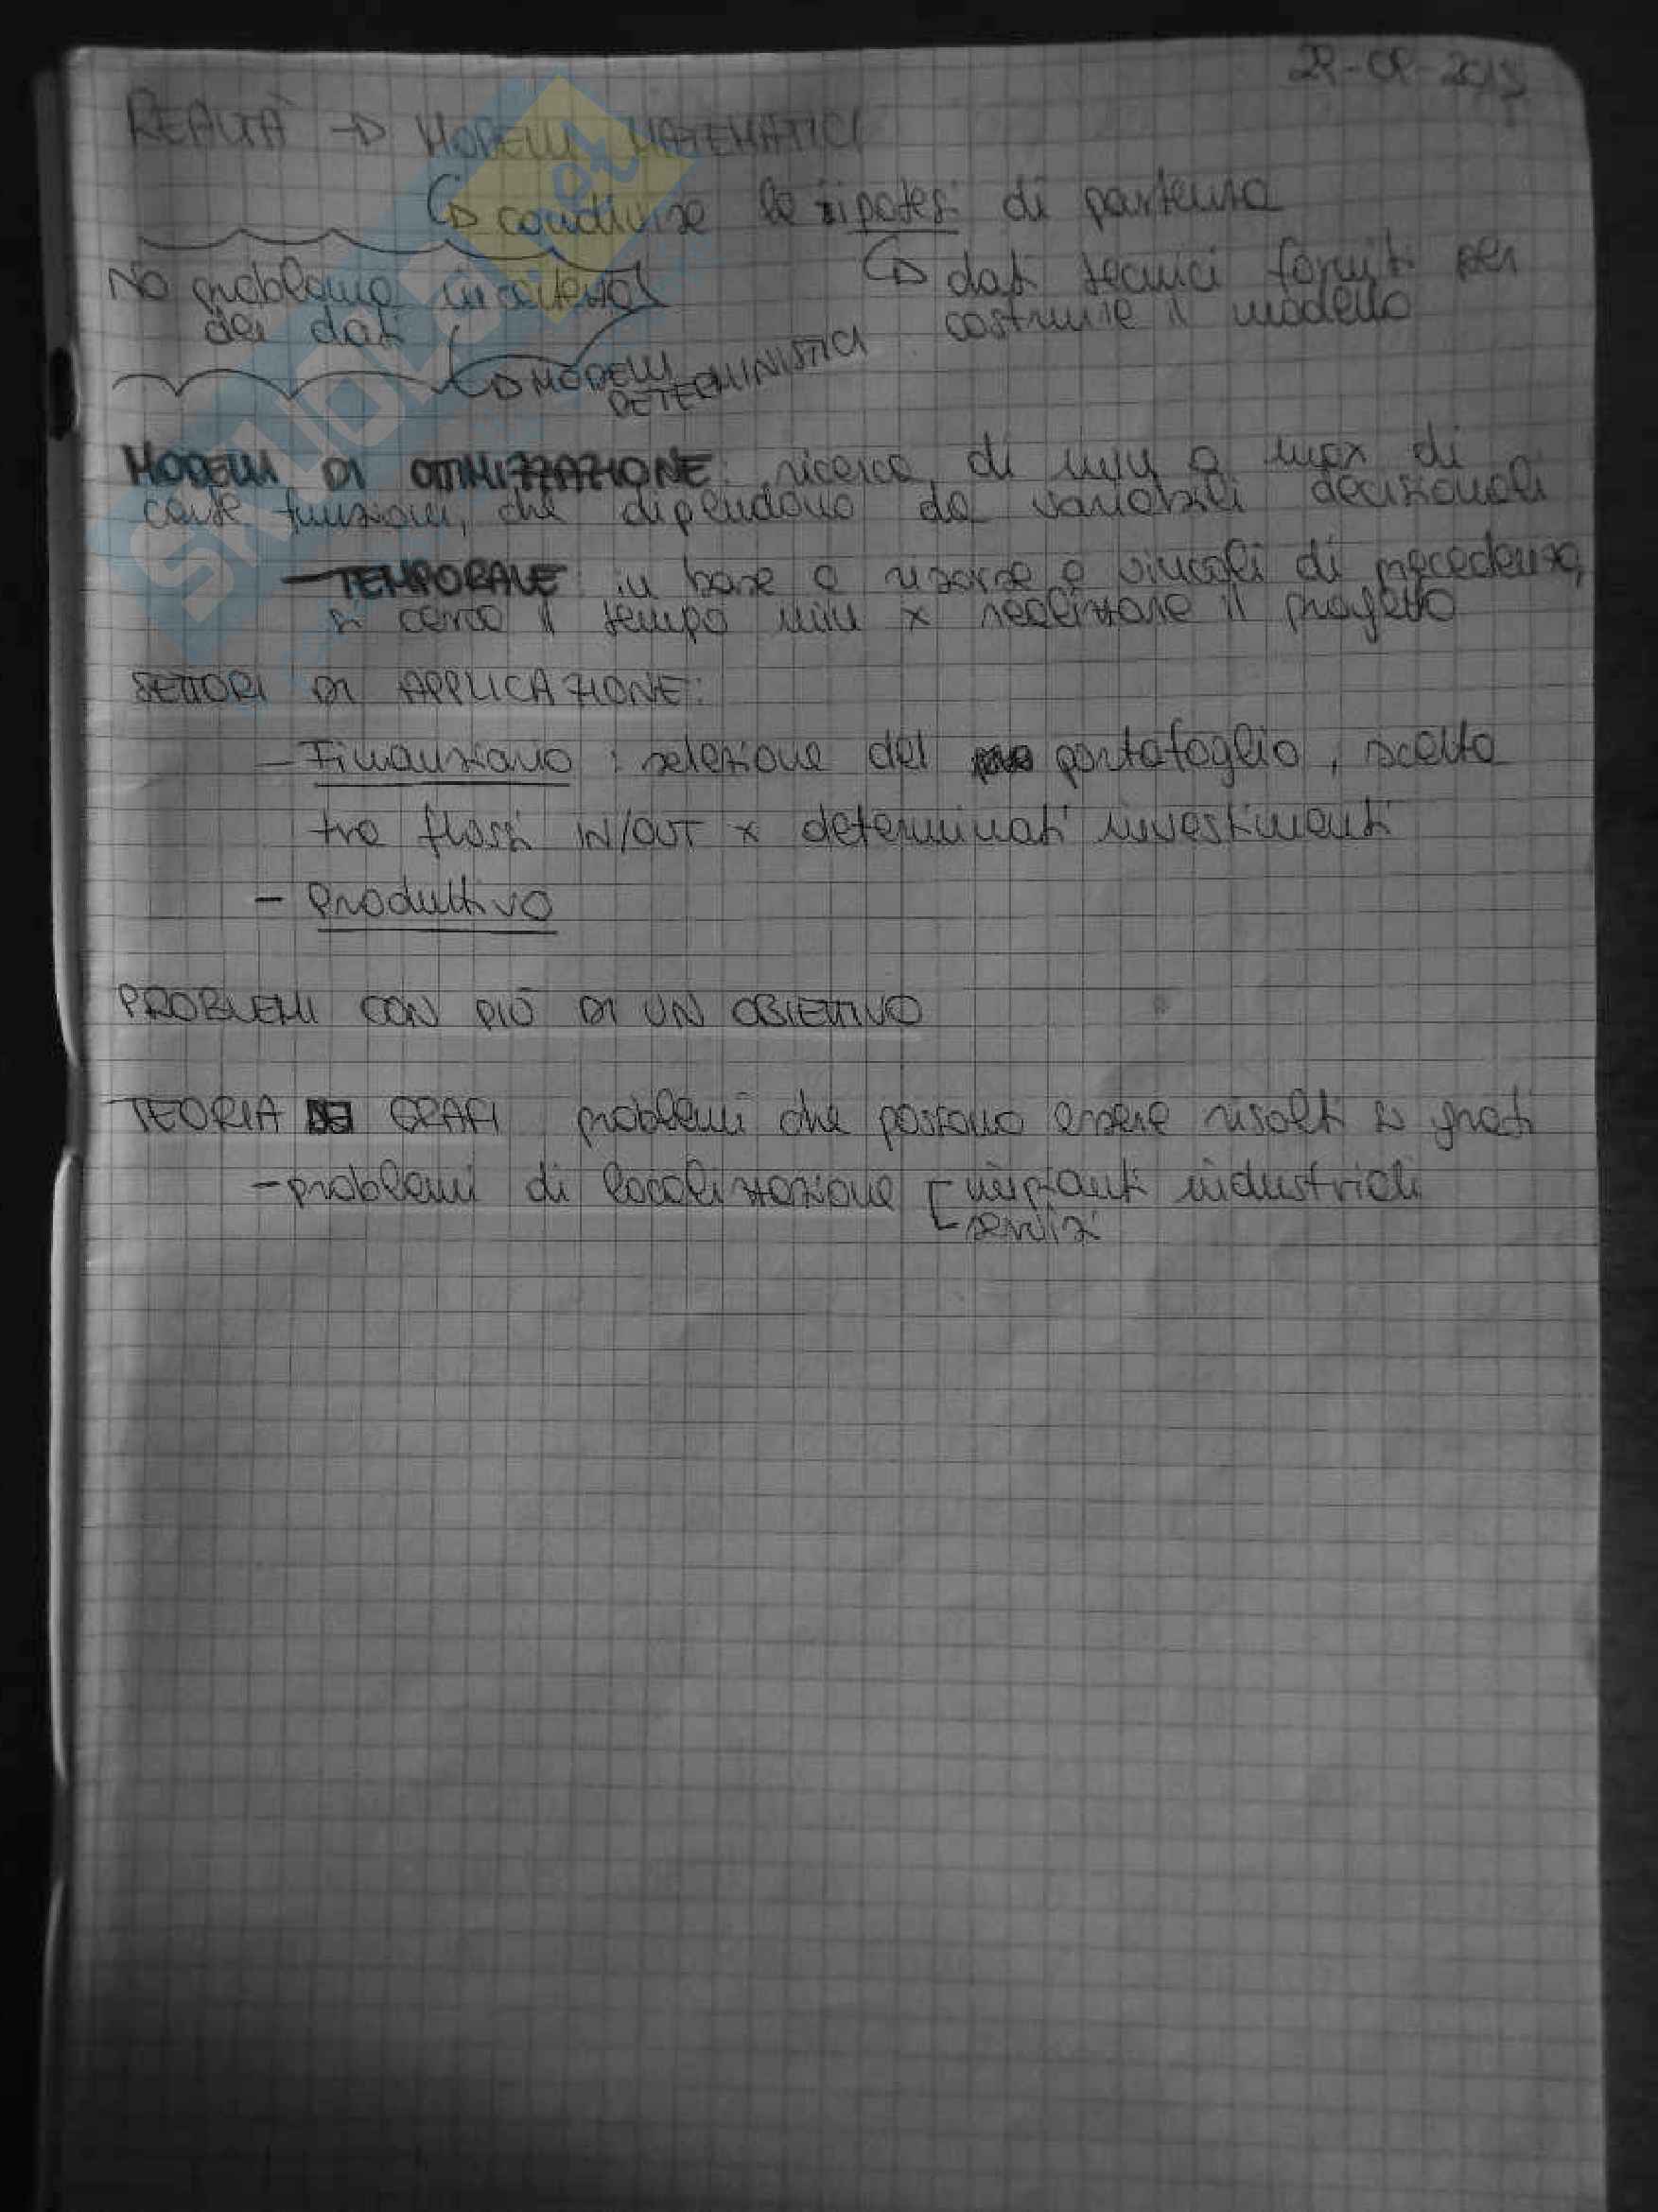 REALTÀ → MODELLI MATEMATICI
condivise le ipotesi di partenza
No problema incertezza
dei dati
dati tecnici forniti per
costruire il modello
MODELLI
DETERMINISTICI
MODELLI DI OTTIMIZZAZIONE: ricerca di min o max di
certe funzioni, che dipendono da variabili decisionali
- TEMPORALE: in base a risorse e vincoli di precedenza,
si cerca il tempo min x realizzare il progetto
SETTORI DI APPLICAZIONE:
- Finanziario: selezione del portafoglio, scelta
tra flussi IN/OUT x determinati investimenti
- Produttivo
PROBLEMI CON PIÙ DI UN OBIETTIVO
TEORIA GRAFI problemi che possono essere risolti su grafi
- problemi di localizzazione [ impianti industriali
servizi
SKUOLA.net